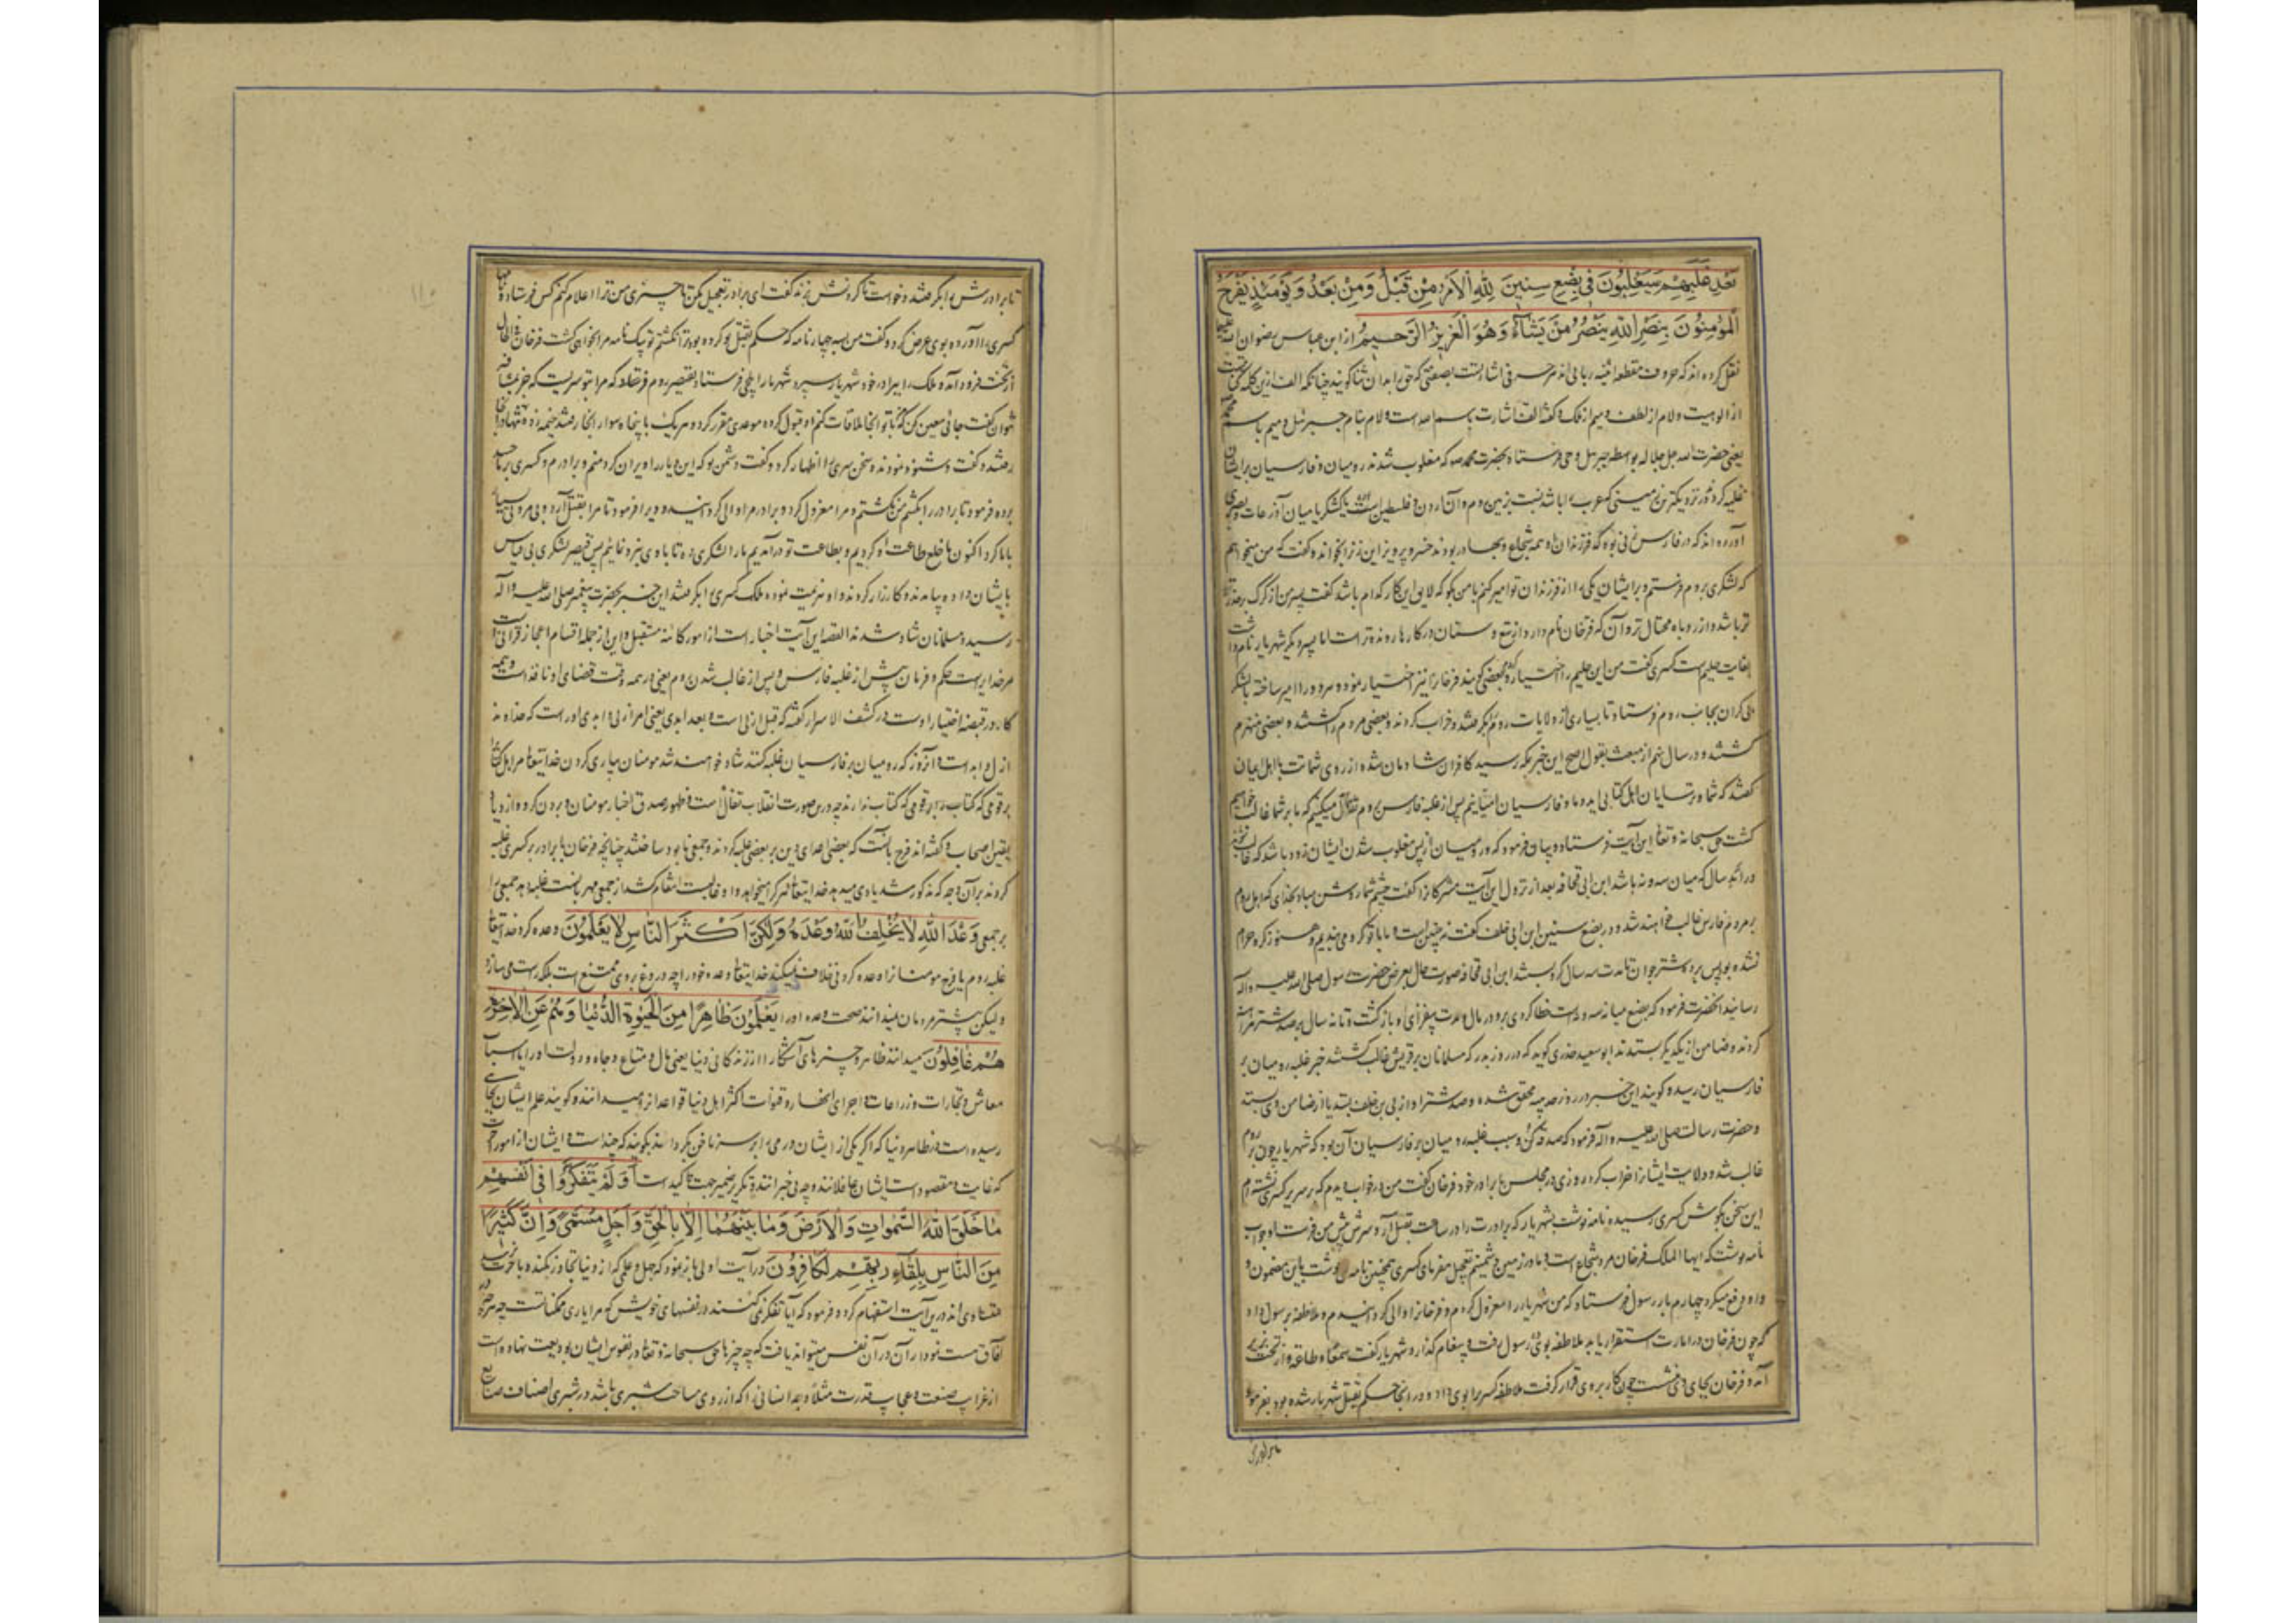 بَعْدِ غَلَبِهِمْ سَيَغْلِبُونَ فِي بِضْعِ سِنِينَ لِلَّهِ الْأَمْرُ مِنْ قَبْلُ وَمِنْ بَعْدُ وَيَوْمَئِذٍ يَفْرَحُ
الْمُؤْمِنُونَ بِنَصْرِ اللَّهِ يَنْصُرُ مَنْ يَشَاءُ وَهُوَ الْعَزِيزُ الرَّحِيمُ از ابن عباس رضوان الله علیه
نقل کرده اند که حروف مقطعه اند هر حرفی اشارتست بصفتی که حق را بدان ثنا گویند چنانکه الف ازین کلمه
از الوهیت و لام از لطف و میم از ملک و گفته الف اشارت باسم الله است و لام بنام جبرئیل و میم باسم محمد
یعنی حضرت الله جل جلاله بواسطه جبرئیل وحی فرستاد بحضرت محمد که مغلوب شدند رومیان و فارسیان بر ایشان
غلبه کردند در نزدیکترین زمینی که عرب را باشد نسبت بزمین روم و آن اردن و فلسطین است یا کشکر یا میان اذرعات و بصری
آورده اند که در فارس زنی بوده که فرزندان او همه شجاع و بهادر بودند خسرو پرویز این زن را بخوانده گفت که من میخواهم
که لشکری بروم فرستم و بر ایشان یکی را از فرزندان تو امیر کنم با من بگو که لایق این کار کدام باشد گفت پسر من از گرگ
تر باشد و از روباه محتال تر و آن که فرخان نام دارد از تیغ و سنان در کارها رونده تر است اما پسر دیگر شهریار نام دارد
بغایت حلیم است کسری گفت من این حلیم را اختیار کردم و بعضی گویند فرخان را نیز اختیار نمود و هر دو را امیر ساخته با لشکر
کران بجانب روم فرستاد تا بسیاری از ولایات روم بگرفتند و خراب کردند و بعضی مردم را کشتند و بعضی منهزم
گشتند و در سال نهم از مبعث بقول اصح این خبر بمکه رسید کافران شادمان شده از روی شماتت با اهل ایمان
گفتند که شما و ترسایان اهل کتابی اید و ما و فارسیان امیانیم پس از غلبه فارس بر روم تفأل میکنیم که ما بر شما غالب خواهیم
گشت حق سبحانه و تعالی این آیت فرستاده و بیان فرمود که رومیان از پس مغلوب شدن ایشان زود باشد که غالب شوند
در اند سال که میان سه و نه باشد ابن ابی قحافه بعد از نزول این آیت مشرکان را گفت چشم شما روشن مباد بخدای که اهل روم
بر مردم فارس غالب خواهند شد و در بضع سنین ابن ابی خلف گفت نه چنین است و ما با تو گرو می بندیم و هنوز گرو حرام
نشده بود پس برده شتر جوان تا مدت سه سال گرو بستند ابن ابی قحافه صورت حال بعرض حضرت رسول صلی الله علیه و آله
رسانید آنحضرت فرمود که بضع میانه سه و نه است خطا کردی برو در مال و مدت بیفزای او بازگشت و تا نه سال بر صد شتر قرار
کردند و ضامن از یکدیگر بستدند ابو سعید خدری گوید که در روز بدر که مسلمانان بر قریش غالب گشتند خبر غلبه رومیان بر
فارسیان رسید و گویند این خبر در روز حدیبیه محقق شده و صد شتر او از ابی بن خلف بستد یا از ضامن وی بستد
و حضرت رسالت صلی الله علیه و آله فرمود که صدقه کن و سبب غلبه رومیان بر فارسیان آن بود که شهریار چون بر روم
غالب شد و ولایت ایشان را خراب کرد روزی در مجلس با برادر خود فرخان گفت من در خواب دیدم که بر سریر کسری نشسته ام
این سخن بگوش کسری رسیده نامه نوشت بشهریار که برادرت را در ساعت بقتل آر و سرش پیش من فرست او جواب
نامه نوشت که ایها الملک فرخان مرد شجاع است و ما در زمین دشمنیم تعجیل مفرمای کسری همچنین نامه نوشت باین مضمون و
او دفع میکرد چهارم بار رسول فرستاد که من شهریار را معزول کردم و فرخان را والی گردانیدم و ملاطفه برسول داد
که چون فرخان در امارت استقرار یابد ملاطفه بوی ده رسول رفت و پیغام گذارد شهریار گفت سمعا و طاعة و از تخت بزیر
آمد و فرخان بجای وی نشست چون کار بر وی قرار گرفت ملاطفه کسری را بوی داد و در آنجا حکم بقتل شهریار شده بود بفرمود
تا برادرش را بگرفتند و خواست تا گردنش بزند گفت ای برادر تعجیل مکن تا چیزی من ترا اعلام کنم کس فرستاد و نامهای
کسری را آورده بوی عرض کرد و گفت من سه چهار نامه که حکم بقتل تو کرده بود ترا نکشتم تو بیک نامه مرا بخواهی کشت فرخان فی الحال
از تخت فرود آمد و ملک را ببرادر خود شهریار سپرد شهریار ایلچی فرستاد بقیصر روم فرستاد که مرا بتو سریست که جز بمشافهه
نتوان گفت جائی معین کن که تا تو آنجا ملاقات کنم او قبول کرده موعدی مقرر کرد و هر یک با پنجاه سوار آنجا رفتند خیمه زده تنها در آنجا
رفتند و گفت و شنود نمودند و سخن کسری را اظهار کرد و گفت دشمن تو که این دیار را ویران کرد منم و برادرم و کسری بر ما حسد
برده فرمود تا برادر را بکشم من نکشتم و مرا معزول کرد و برادرم را والی گردانیده ویرا فرمود تا مرا بقتل آرد و بی مروتی بسیار
با ما کرد اکنون ما خلع طاعت او کردیم و بطاعت تو در آمدیم ما را لشکری ده تا با وی نبرد نمائیم پس قیصر لشکری بی قیاس
بایشان داده بیامدند و کارزار کردند و او هزیمت نموده ملک کسری را بگرفتند این خبر بحضرت پیغمبر صلی الله علیه و آله
رسید و مسلمانان شاد شدند القصه این آیت اخبار است از امور کائنه مستقبل و این از جمله اقسام اعجاز قرآنی است
مر خدا یراست حکم و فرمان پیش از غلبه فارس و پس از غالب شدن روم یعنی در همه وقت قضای او نافذ است و همه
کار در قبضه اختیار اوست در کشف الاسرار گفته که قبل ازلی است و بعد ابدی یعنی امر ازلی و ابدی اوراست که خداوند
ازل و ابد است و آن روز که رومیان بر فارسیان غلبه کنند شاد خواهند شد مومنان بیاری کردن خدایتعالی مر اهل کتاب را
بر قومی که کتاب ندارند چه درین صورت انقلاب تفأل است و ظهور صدق اخبار مومنان و بردن گرو و ازدیاد
یقین اصحاب و گفته اند فرح بآنست که بعضی اعدای دین بر بعضی غلبه کردند و جمعی نابود ساختند چنانچه فرخان با برادر بر کسری غلبه
کردند بر آن وجه که مذکور شد یاری میدهد خدایتعالی هر کرا میخواهد و او غالبست انتقام کشد از جمعی مهربانست غلبه دهد جمعی را
بر جمعی وَعْدَ اللَّهِ لَا يُخْلِفُ اللَّهُ وَعْدَهُ وَلَكِنَّ أَكْثَرَ النَّاسِ لَا يَعْلَمُونَ وعده کرد خدایتعالی
غلبه روم یا فرح مومنان را وعده کردنی خلاف نمیکند خدایتعالی وعده خود را چه دروغ بر وی ممتنع است بلکه راست می سازد
ولیکن بیشتر مردمان نمیدانند صحت وعده او را يَعْلَمُونَ ظَاهِرًا مِنَ الْحَيَوةِ الدُّنْيَا وَهُمْ عَنِ الْآخِرَةِ
هُمْ غَافِلُونَ میدانند ظاهر و چیزهای آشکارا از زندگانی دنیا یعنی مال و متاع و جاه و دولت او را یا اسباب
معاش و تجارات و زراعات و اجرای انهار و قنوات اکثر اهل دنیا قواعد آنرا میدانند و گویند علم ایشان بجائی
رسیده است در ظاهر دنیا که اگر یکی از ایشان درمی را بر سر ناخن بگرداند بگویند که چند است و ایشان از امور آخرت
که غایت و مقصود است ایشان غافلانند و چه بی خبرانند تکریر ضمیر جهت تاکید است أَوَلَمْ يَتَفَكَّرُوا فِي أَنْفُسِهِمْ
مَا خَلَقَ اللَّهُ السَّمَوَاتِ وَالْأَرْضَ وَمَا بَيْنَهُمَا إِلَّا بِالْحَقِّ وَأَجَلٍ مُسَمًّى وَإِنَّ كَثِيرًا
مِنَ النَّاسِ بِلِقَاءِ رَبِّهِمْ لَكَافِرُونَ در آیت اولی باز نمود که جهل و علمی که از دنیا تجاوز نکنده بآخرت
متساوی اند درین آیت استفهام کرده و فرمود که آیا تفکر نمی کنند در نفسهای خویش که مرایای ممکناتست چه هر چه در
آفاق هست نمودار آن در آن نفس میتواند یافت که چه چیزها حق سبحانه و تعالی در نفوس ایشان بودیعت نهاده است
از غرایب صنعت و عجایب قدرت مثلا وجد انسانی را که از روی مساحت شبری باشد در شبری اصناف صنایع